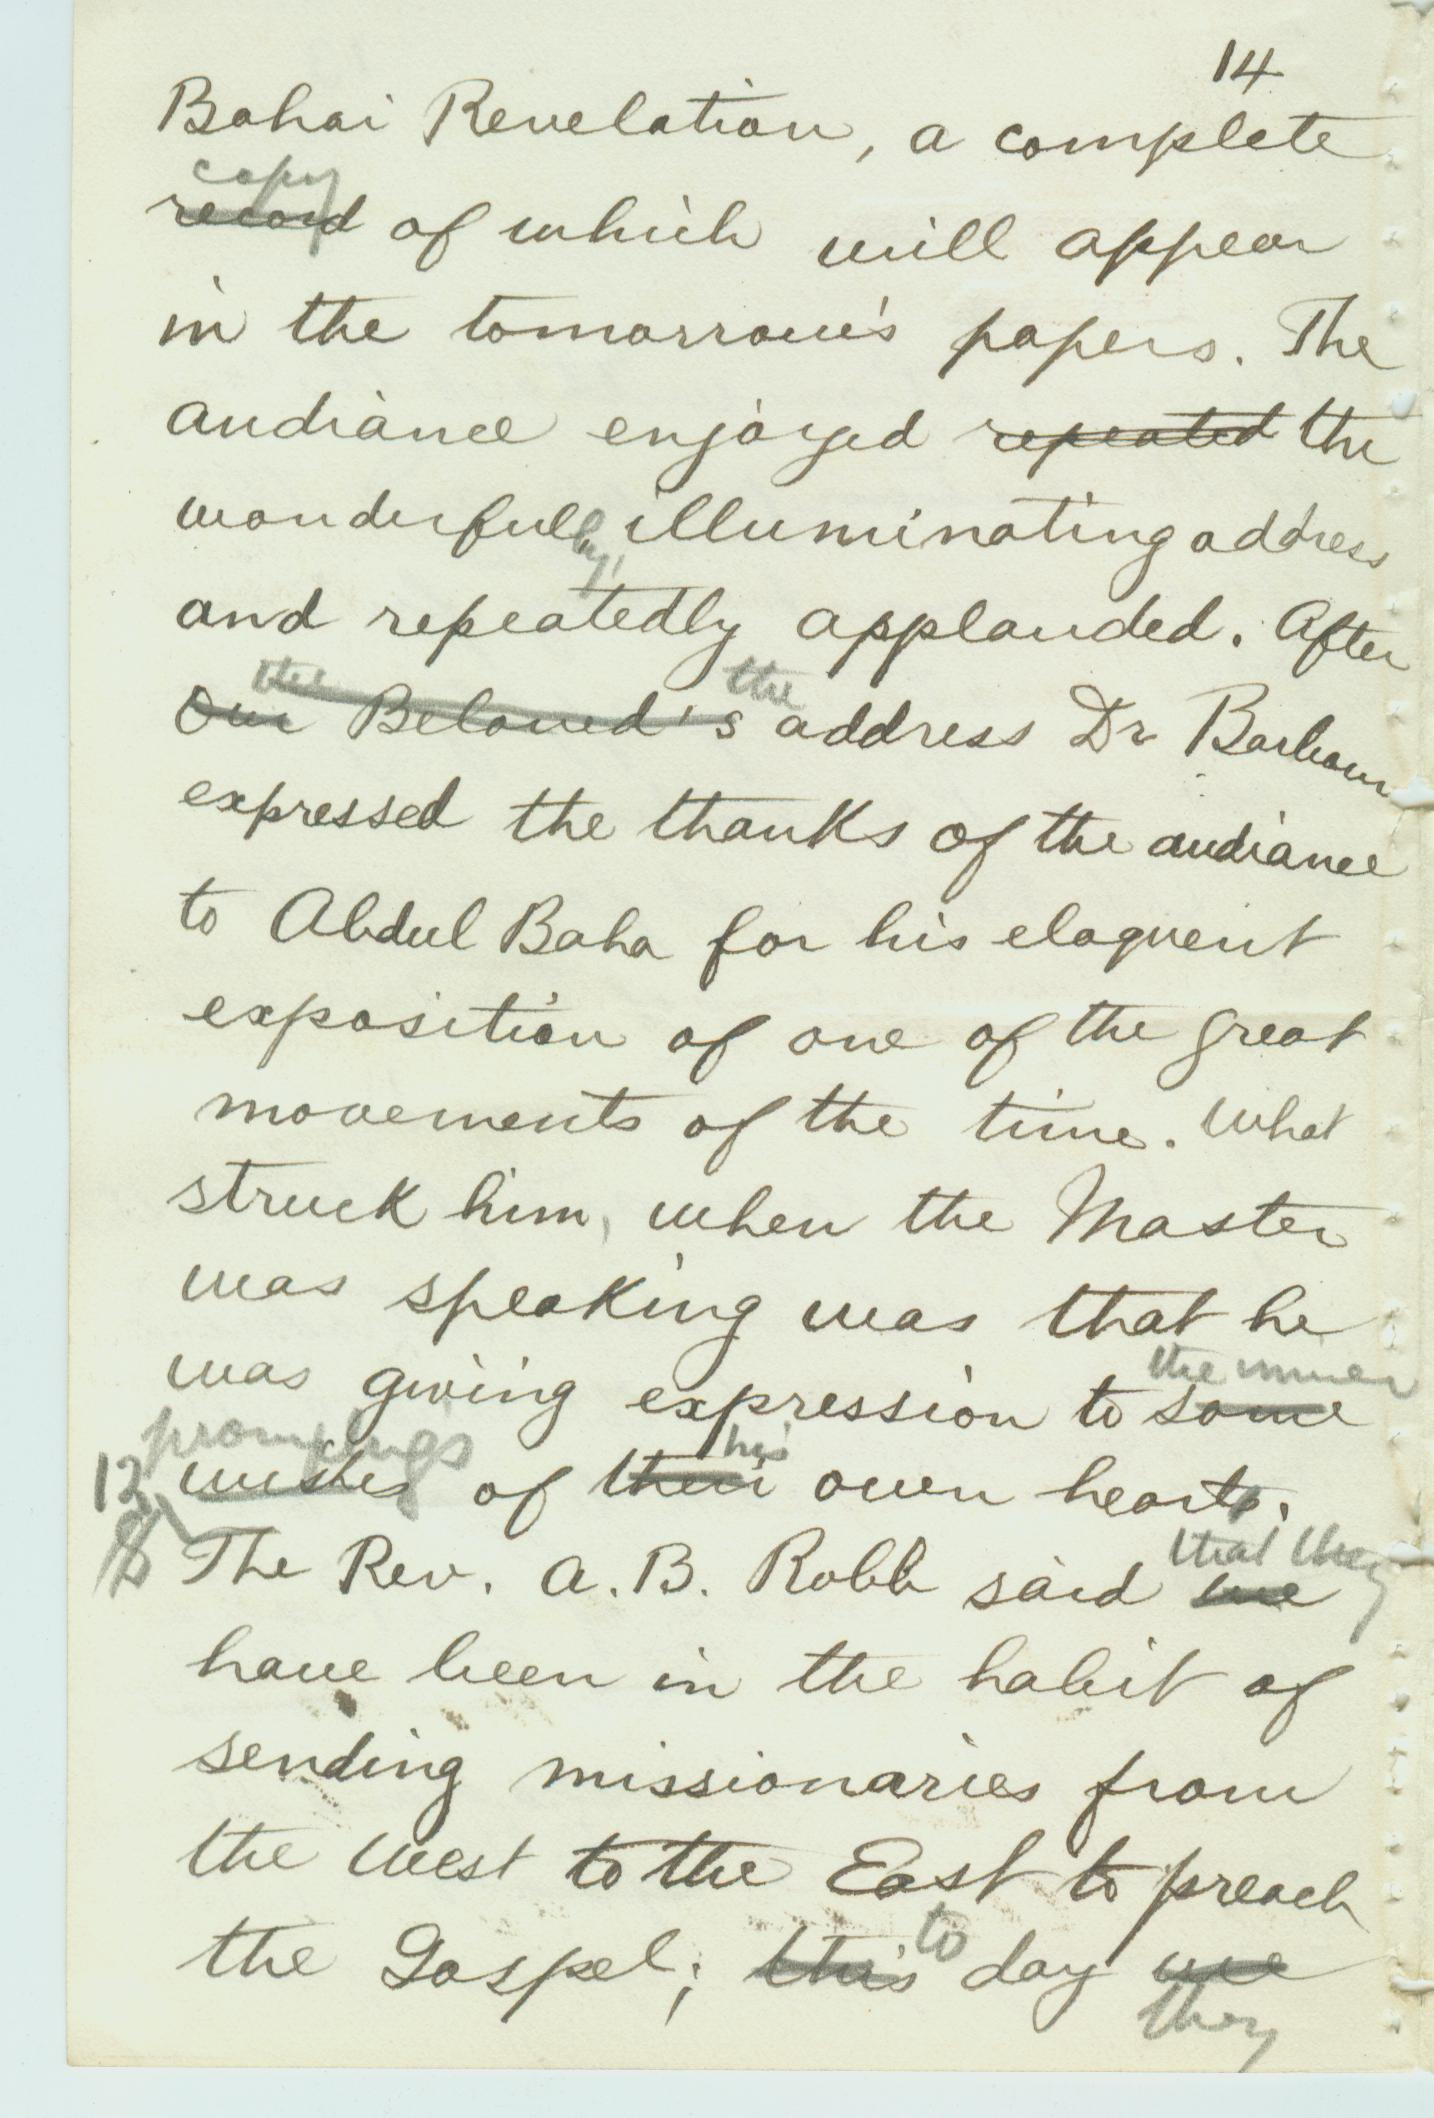 14
Bahai Revelation, a complete
copy
record of which will appear
in the tomorrow's papers. The
audiance enjoyed repeated the
wonderfully illuminating address
and repeatedly applauded. After
the the
Our Beloved's address Dr Barbour
expressed the thanks of the audiance
to Abdul Baha for his eloquent
exposition of one of the great
movements of the time. What
struck him, when the Master
was speaking was that he
the inner
was giving expression to some
promptings his
12 wishes of their own hearts.
that they
The Rev. A. B. Robb said we
have been in the habit of
sending missionaries from
the West to the East to preach
to
the Gospel; this day we
they